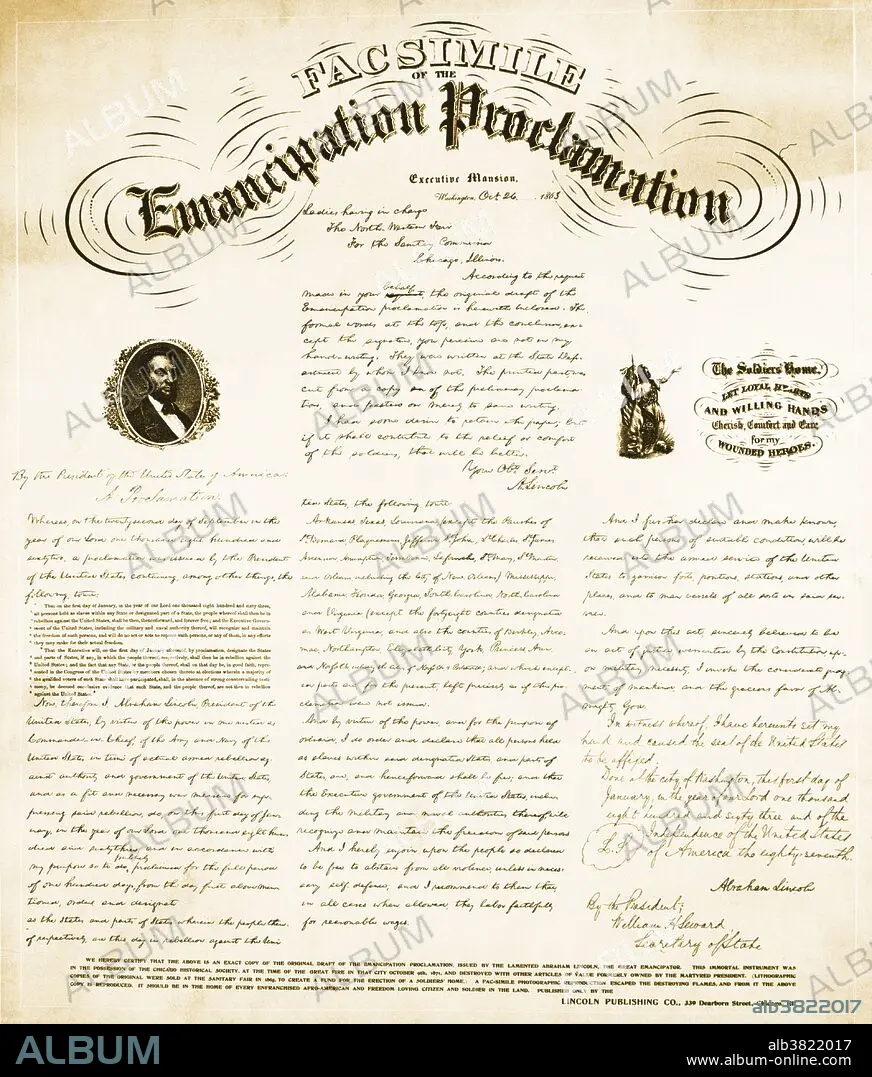 FACSIMILE
OF THE
Emancipation Proclamation
Executive Mansion,
Washington, Oct 26, 1863
Ladies having in charge
The North Western Fair
For the Sanitary Commission
Chicago, Illinois.
According to the request
made in your behalf, the original draft of the
Emancipation proclamation is herewith inclosed. The
formal words at the top, and the conclusion, ex-
cept the signature, you perceive are not in my
hand-writing. They were written at the State Dep-
artment by whom I know not. The printed part was
cut from a copy of the preliminary proclama-
tion, and pasted on merely to save writing.
I had some desire to retain the paper; but
if it shall contribute to the relief or comfort
of the soldiers, that will be better.
Your Obt. Servt.
A. Lincoln
The Soldiers' Home.
LET LOYAL HEARTS
AND WILLING HANDS
Cherish, Comfort and Care
for my
WOUNDED HEROES.
By the President of the United States of America:
A Proclamation.
Whereas, on the twenty second day of September in the
year of our Lord one thousand eight hundred and
sixty two, a proclamation was issued by the President
of the United States, containing, among other things, the
following, to wit:
"That on the first day of January, in the year of our Lord one thousand eight hundred and sixty three,
all persons held as slaves within any State or designated part of a State, the people whereof shall then be in
rebellion against the United States, shall be then, thenceforward, and forever free; and the Executive Govern-
ment of the United States, including the military and naval authority thereof, will recognize and maintain
the freedom of such persons, and will do no act or acts to repress such persons, or any of them, in any efforts
they may make for their actual freedom.
"That the Executive will, on the first day of January aforesaid, by proclamation, designate the States
and parts of States, if any, in which the people thereof, respectively, shall then be in rebellion against the
United States; and the fact that any State, or the people thereof, shall on that day be, in good faith, repre-
sented in the Congress of the United States by members chosen thereto at elections wherein a majority of
the qualified voters of such State shall have participated, shall, in the absence of strong countervailing testi-
mony, be deemed conclusive evidence that such State, and the people thereof, are not then in rebellion
against the United States."
Now, therefore I, Abraham Lincoln President of the
United States, by virtue of the power in me vested as
Commander-in-Chief, of the Army and Navy of the
United States, in time of actual armed rebellion ag-
ainst authority and government of the United States,
and as a fit and necessary war measure for sup-
pressing said rebellion, do, on this first day of Jan-
uary, in the year of our Lord one thousand eight hun-
dred and sixty three, and in accordance with
my purpose so to do, publicly proclaimed for the full period
of one hundred days, from the day first above men-
tioned, order and designate
as the States and parts of States wherein the people there-
of respectively, are this day in rebellion against the Uni-
ted States, the following, to wit:
Arkansas, Texas, Louisiana, (except the Parishes of
St. Bernard, Plaquemines, Jefferson, St. John, St. Charles, St. James,
Ascension, Assumption, Terrebonne, Lafourche, St. Mary, St. Martin,
and Orleans, including the City of New Orleans) Mississippi,
Alabama, Florida, Georgia, South Carolina, North Carolina,
and Virginia, (except the fortyeight counties designated
as West Virginia, and also the counties of Berkley, Acco-
mac, Northampton, Elizabeth City, York, Princess Ann,
and Norfolk, including the cities of Norfolk & Portsmouth); and which except-
ed parts are, for the present, left precisely as if this pro-
clamation were not issued.
And by virtue of the power, and for the purpose af-
oresaid, I do order and declare that all persons held
as slaves within said designated States, and parts of
States, are, and henceforward shall be free; and that
the Executive government of the United States, inclu-
ding the military and naval authorities thereof, will
recognize and maintain the freedom of said persons.
And I hereby enjoin upon the people so declared
to be free to abstain from all violence, unless in neces-
sary self-defence; and I recommend to them that,
in all cases when allowed, they labor faithfully
for reasonable wages.
And I further declare and make known,
that such persons of suitable condition, will be
received into the armed service of the United
States to garrison forts, positions, stations, and other
places, and to man vessels of all sorts in said ser-
vice.
And upon this act, sincerely believed to be
an act of justice, warranted by the Constitution, up-
on military necessity, I invoke the considerate judg-
ment of mankind, and the gracious favor of Al-
mighty God.
In witness whereof, I have hereunto set my
hand and caused the seal of the United States
to be affixed.
Done at the city of Washington, this first day of
January, in the year of our Lord one thousand
eight hundred and sixty three, and of the
Independence of the United States
L.S.
of America the eighty-seventh.
Abraham Lincoln
By the President;
William H. Seward,
Secretary of State
WE HEREBY CERTIFY THAT THE ABOVE IS AN EXACT COPY OF THE ORIGINAL DRAFT OF THE EMANCIPATION PROCLAMATION, ISSUED BY THE LAMENTED ABRAHAM LINCOLN, THE GREAT EMANCIPATOR. THIS IMMORTAL INSTRUMENT WAS
IN THE POSSESSION OF THE CHICAGO HISTORICAL SOCIETY, AT THE TIME OF THE GREAT FIRE IN THAT CITY OCTOBER 9th, 1871, AND DESTROYED WITH OTHER ARTICLES OF VALUE FORMERLY OWNED BY THE MARTYRED PRESIDENT. (LITHOGRAPHIC
COPIES OF THE ORIGINAL WERE SOLD AT THE SANITARY FAIR IN 1863, TO CREATE A FUND FOR THE ERECTION OF A SOLDIERS' HOME.) A FAC-SIMILE PHOTOGRAPHIC REPRODUCTION ESCAPED THE DESTROYING FLAMES, AND FROM IT THE ABOVE
COPY IS REPRODUCED. IT SHOULD BE IN THE HOME OF EVERY ENFRANCHISED AFRO-AMERICAN AND FREEDOM LOVING CITIZEN AND SOLDIER IN THE LAND. PUBLISHED ONLY BY THE
LINCOLN PUBLISHING CO., 339 Dearborn Street, Chicago, Ill.
alb3822017
ALBUM
alb3822017
www.album-online.com